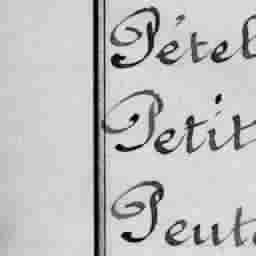 Pétel
Petit
Peuta